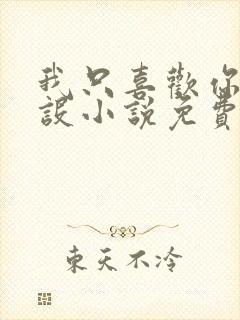 我只喜歡你
設小說免費
東天不冷